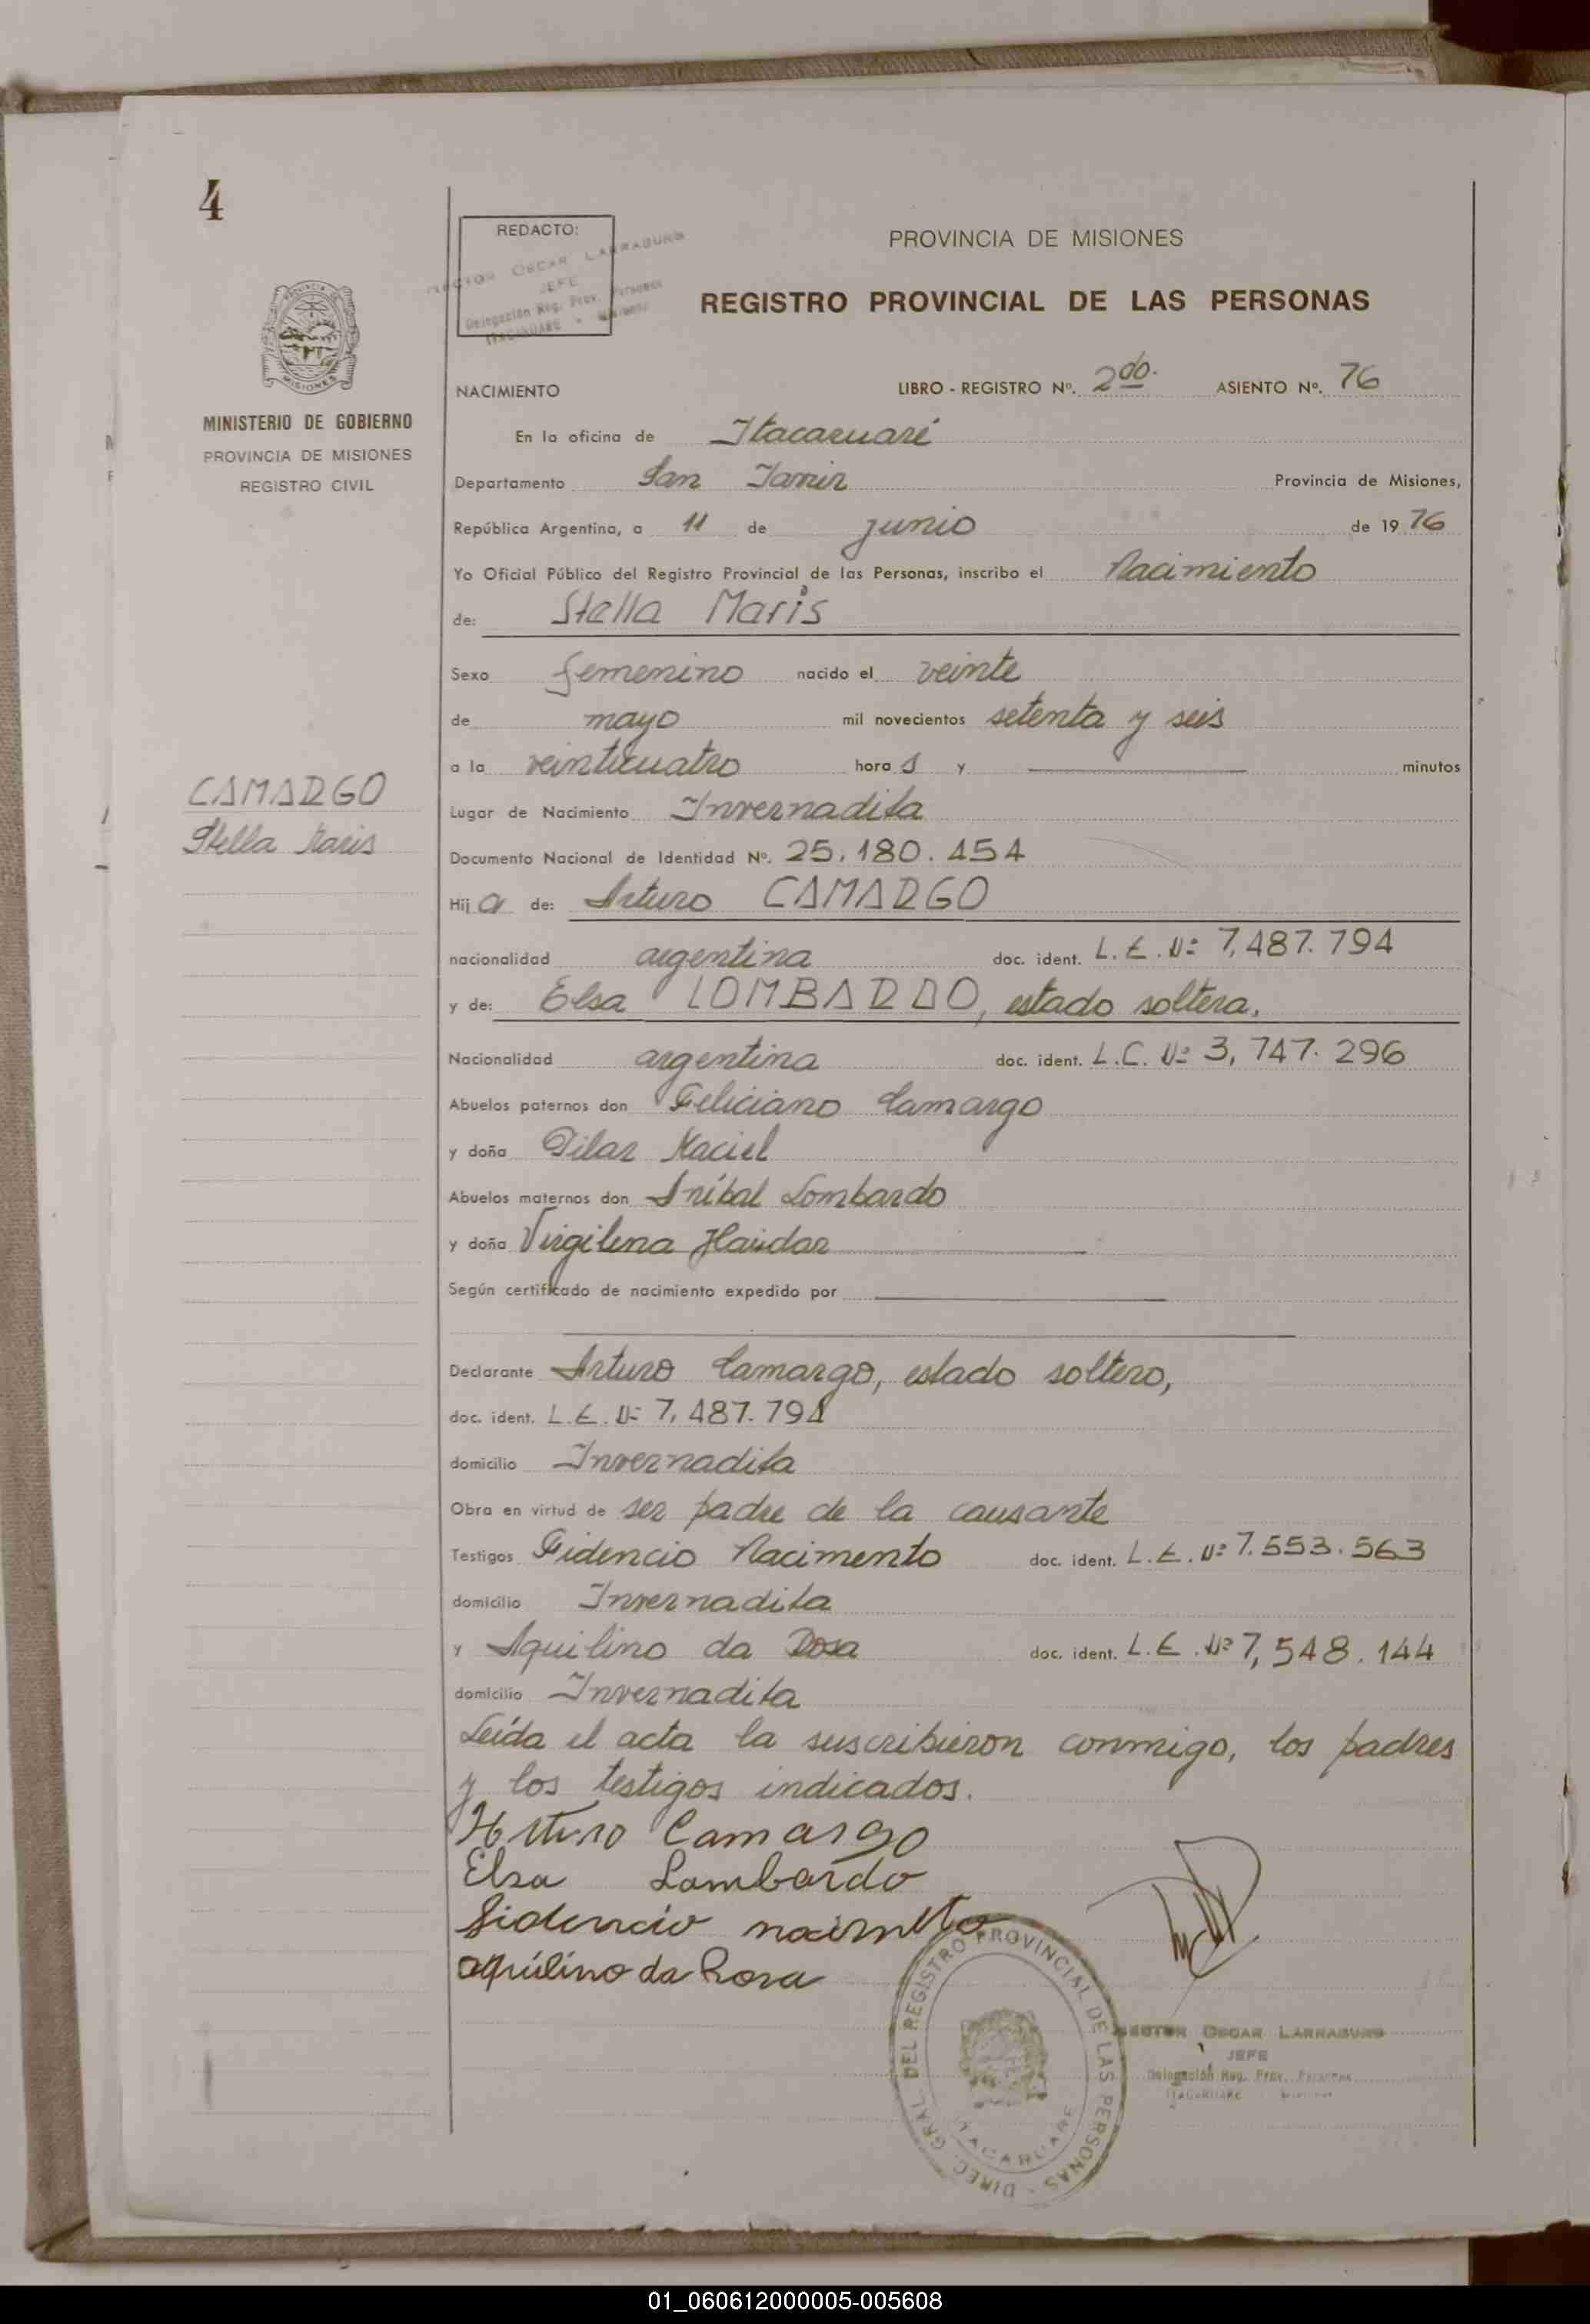 4
REDACTO:
HECTOR OSCAR LARRABURU
JEFE
Delegación Reg. Prov. Personas
ITACARUARE - Misiones
PROVINCIA DE MISIONES
REGISTRO PROVINCIAL DE LAS PERSONAS
PROVINCIA DE
MISIONES
MINISTERIO DE GOBIERNO
PROVINCIA DE MISIONES
REGISTRO CIVIL
NACIMIENTO LIBRO - REGISTRO Nº. 2do. ASIENTO Nº. 76
En la oficina de Itacaruaré
Departamento San Javier Provincia de Misiones,
República Argentina, a 11 de junio de 1976
Yo Oficial Público del Registro Provincial de las Personas, inscribo el Nacimiento
de: Stella Maris
Sexo femenino nacido el veinte
de mayo mil novecientos setenta y seis
a la veinticuatro hora s y minutos
CAMARGO
Stella Maris
Lugar de Nacimiento Invernadita
Documento Nacional de Identidad Nº. 25.180.454
Hij a de: Arturo CAMARGO
nacionalidad argentina doc. ident. L.E.Nº 7,487.794
y de: Elsa LOMBARDO, estado soltera,
Nacionalidad argentina doc. ident. L.C. Nº 3,747.296
Abuelos paternos don Feliciano Camargo
y doña Pilar Maciel
Abuelos maternos don Aníbal Lombardo
y doña Virgilina Haidar
Según certificado de nacimiento expedido por
Declarante Arturo Camargo, estado soltero,
doc. ident. L.E.Nº 7,487.794
domicilio Invernadita
Obra en virtud de ser padre de la causante
Testigos Fidencio Nacimento doc. ident. L.E.Nº 7.553.563
domicilio Invernadita
y Aquilino da Rosa doc. ident. L.E.Nº 7,548.144
domicilio Invernadita
Leída el acta la suscribieron conmigo, los padres
y los testigos indicados.
Arturo Camargo
Elsa Lombardo
Fidencio
aquilino da Rosa
DIREC. GRAL. DEL REGISTRO PROVINCIAL DE LAS PERSONAS
ITACARUARE
HECTOR OSCAR LARRABURU
JEFE
Delegación Reg. Prov. Personas
ITACARUARE
01_060612000005-005608